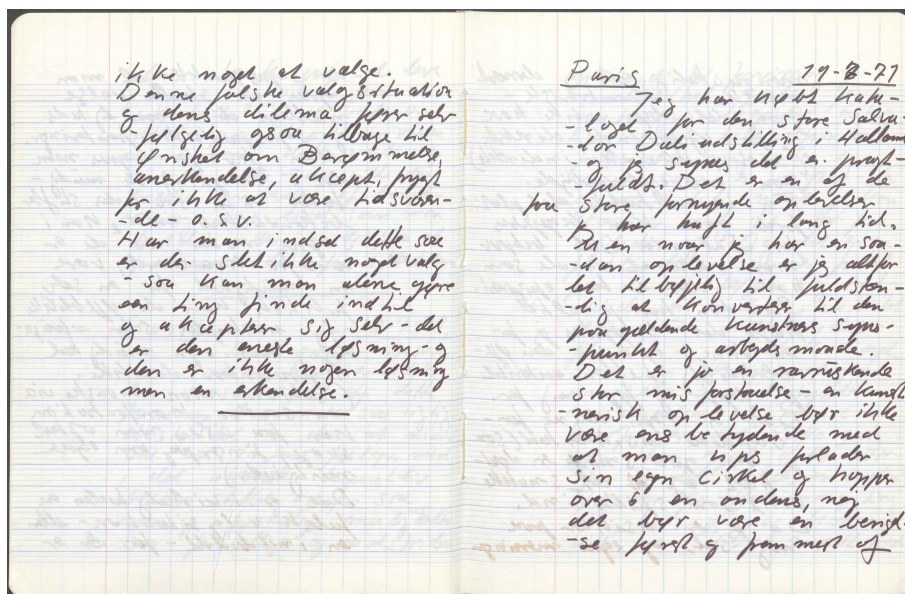 ikke noget at vælge.
Denne falske valgsituation
og dens dilema fører selv
-følgelig ogsaa tilbage til
Ønsket om Berømmelse,
anerkendelse, akcept, frygt
for ikke at være tidsvaren-
-de - o.s.v.
Har man indset dette saa
er der slet ikke noget valg
- saa kan man alene gøre
een ting finde indtil
og akceptere sig selv - det
er den eneste løsning - og
den er ikke nogen løsning
men en erkendelse.
Paris 19-8-71
Jeg har købt kata-
-loget for den store Salva-
-dor Dali udstilling i Holland
- og jeg synes det er pragt-
-fuldt. Det er en af de
faa store fornyende oplevelser
jeg har haft i lang tid.
Men naar jeg har en saa-
-dan oplevelse er jeg altfor
let tilbøjelig til fuldstæn-
-dig at konvertere til den
paagældende kunstners syns-
-punkt og arbejdsmaade.
Det er jo en rørriskende
stor misforstaaelse - en kunst
-nerisk oplevelse bør ikke
være ensbetydende med
at man forlader
sin egen cirkel og hopper
over i en andens, nej
det bør være en berigel-
-se først og fremmest af